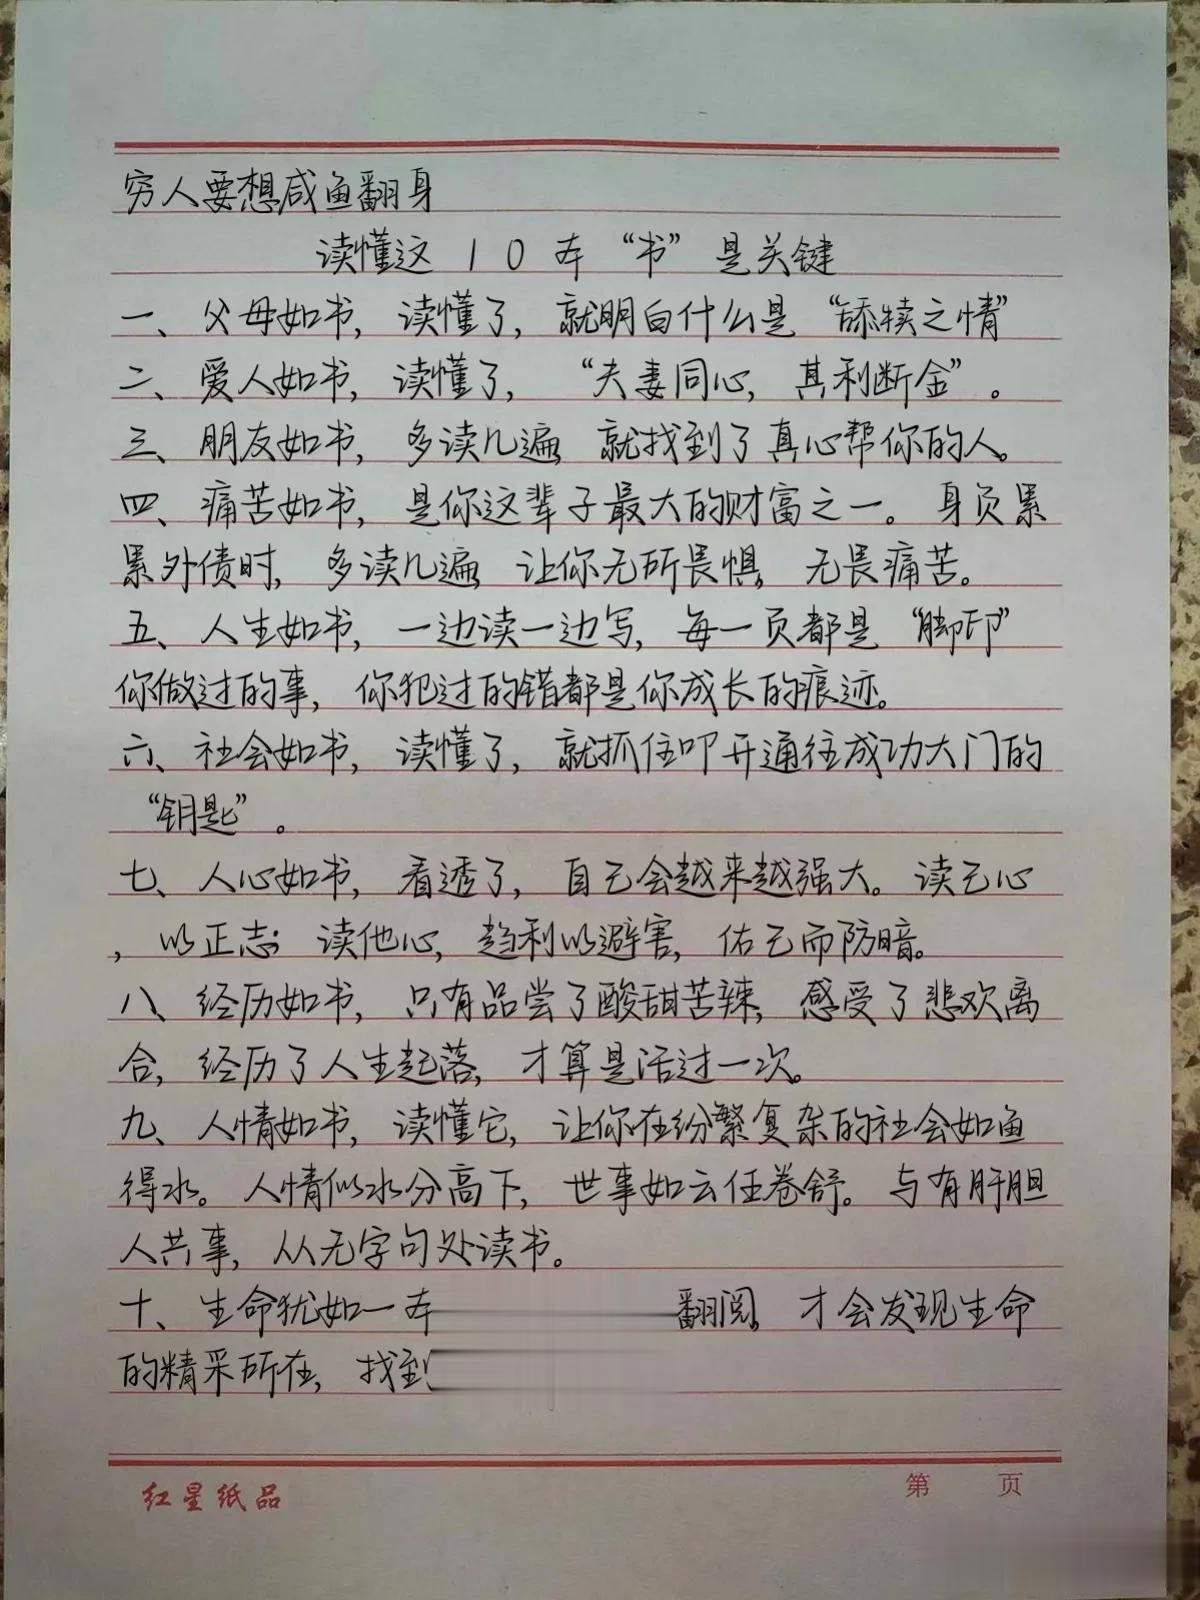 穷人要想咸鱼翻身
读懂这10本“书”是关键
一、父母如书，读懂了，就明白什么是“舔犊之情”
二、爱人如书，读懂了，“夫妻同心，其利断金”。
三、朋友如书，多读几遍，就找到了真心帮你的人。
四、痛苦如书，是你这辈子最大的财富之一。身负累
累外债时，多读几遍，让你无所畏惧，无畏痛苦。
五、人生如书，一边读一边写，每一页都是“脚印”
你做过的事，你犯过的错都是你成长的痕迹。
六、社会如书，读懂了，就抓住叩开通往成功大门的
“钥匙”。
七、人心如书，看透了，自己会越来越强大。读己心
，以正志；读他心，趋利以避害，佑己而防暗。
八、经历如书，只有品尝了酸甜苦辣，感受了悲欢离
合，经历了人生起落，才算是活过一次。
九、人情如书，读懂它，让你在纷繁复杂的社会如鱼
得水。人情似水分高下，世事如云任卷舒。与有肝胆
人共事，从无字句处读书。
十、生命犹如一本翻阅，才会发现生命
的精采所在，找到
红星纸品
第 页